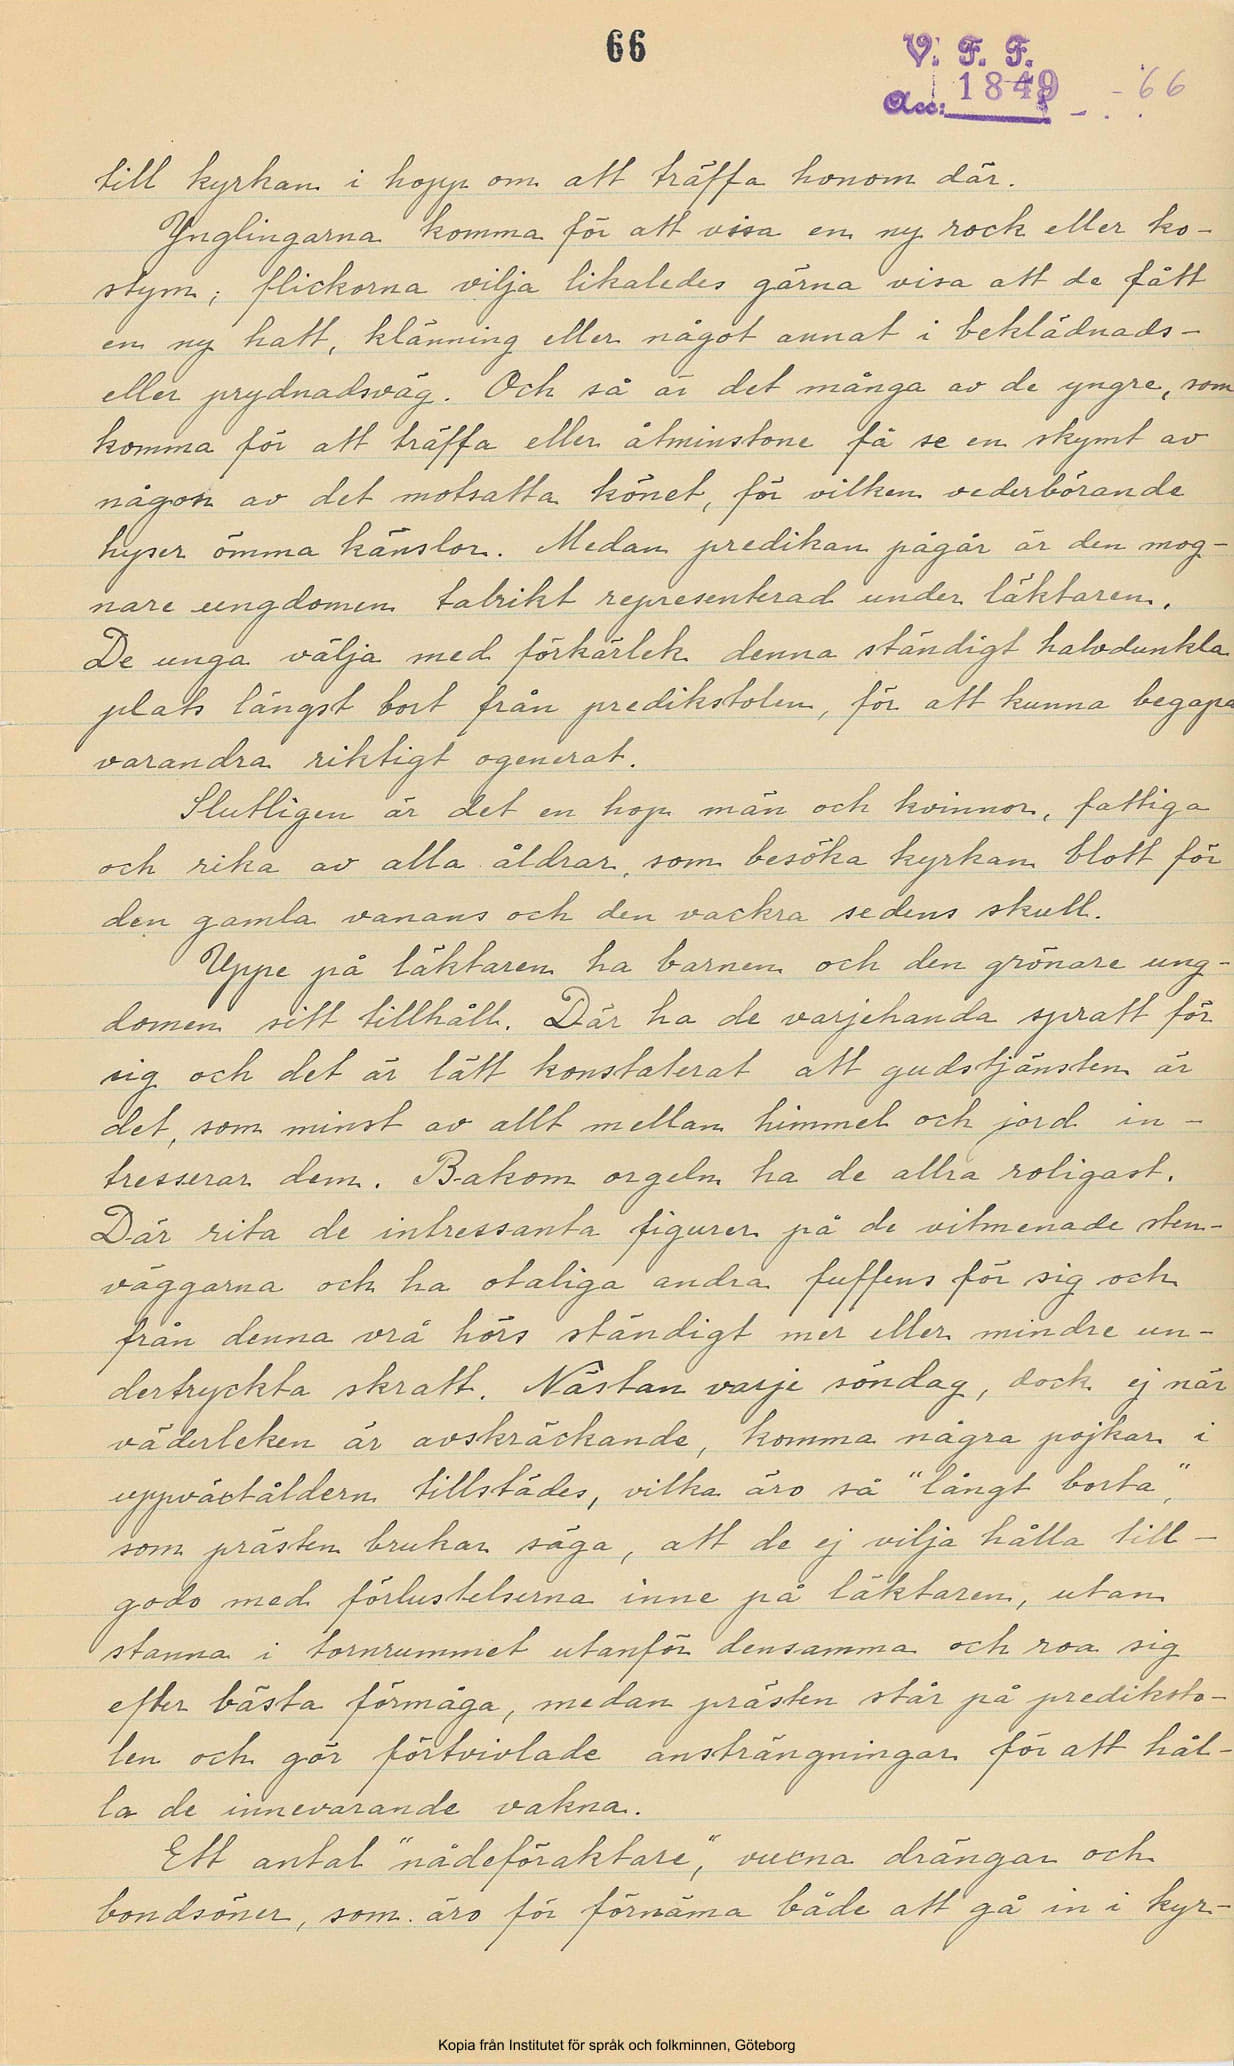 66
V. F. F.
Acc: 1849 - 66
till kyrkan i hopp om att träffa honom där.
Ynglingarna komma för att visa en ny rock eller ko-
stym; flickorna vilja likaledes gärna visa att de fått
en ny hatt, klänning eller något annat i beklädnads-
eller prydnadsväg. Och så är det många av de yngre, som
komma för att träffa eller åtminstone få se en skymt av
någon av det motsatta könet, för vilken vederbörande
hyser ömma känslor. Medan predikan pågår är den mog-
nare ungdomen talrikt representerad under läktaren.
De unga välja med förkärlek denna ständigt halvdunkla
plats längst bort från predikstolen, för att kunna begapa
varandra riktigt ogenerat.
Slutligen är det en hop män och kvinnor, fattiga
och rika av alla åldrar, som besöka kyrkan blott för
den gamla vanans och den vackra sedens skull.
Uppe på läktaren ha barnen och den grönare ung-
domen sitt tillhåll. Där ha de varjehanda spratt för
sig och det är lätt konstaterat att gudstjänsten är
det, som minst av allt mellan himmel och jord in-
tresserar dem. Bakom orgeln ha de allra roligast.
Där rita de intressanta figurer på de vitmenade sten-
väggarna och ha otaliga andra fuffens för sig och
från denna vrå hörs ständigt mer eller mindre un-
dertryckta skratt. Nästan varje söndag, dock ej när
väderleken är avskräckande, komma några pojkar i
uppväxtåldern tillstädes, vilka äro så "långt borta",
som prästen brukar säga, att de ej vilja hålla till-
godo med förlustelserna inne på läktaren, utan
stanna i tornrummet utanför densamma och roa sig
efter bästa förmåga, medan prästen står på prediksto-
len och gör förtvivlade ansträngningar för att hål-
la de innevarande vakna.
Ett antal "nådeföraktare", vuxna drängar och
bondsöner, som äro för förnäma både att gå in i kyr-
Kopia från Institutet för språk och folkminnen, Göteborg